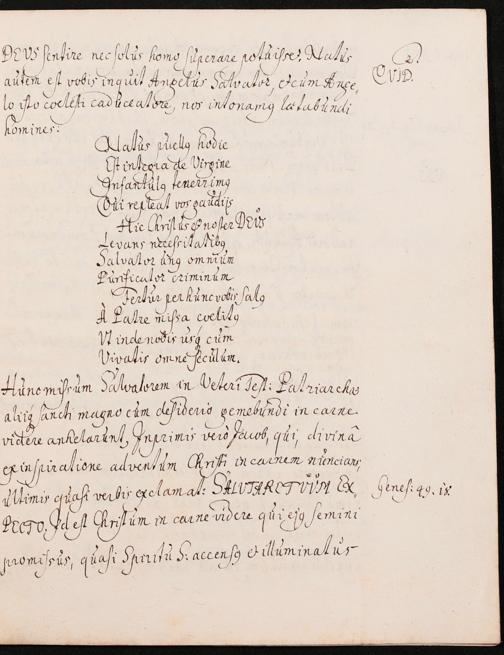 DEVS sentire nec solus homo superare potuisset. Natus
autem est vobis inquit Angelus Salvator, et cum Ange,
lo isto coelesti caduceatore, nos intonamus laetabundi
homines:
2.
OVID.
Natus puellus hodie
Est integra de Virgine
Infantulus tenerrimus
Qui repleat vos gaudijs
Hic Christus et noster DEUS
Levans necessitatibus
Salvator unus omnium
Purificator criminum
Fertur per hunc vobis salus
À Patre missa coelitus
Ut inde nobis usque cum
Vivatis omne seculum.
Hunc missum Salvatorem in Veteri Test: Patriarchae
alijque sancti magno cum desiderio gemebundi in carne
videre anhelarunt, Inprimis verò Jacob, qui, divinâ
ex inspiratione adventum Christi in carnem nuncians,
ultimis quasi verbis exclamat: SALUTARE TUUM EX,
PECTO, Id est Christum in carne videre qui ejus semini
Genes: 49. ix
promissus, quasi Spiritu S. accensus et illuminatus